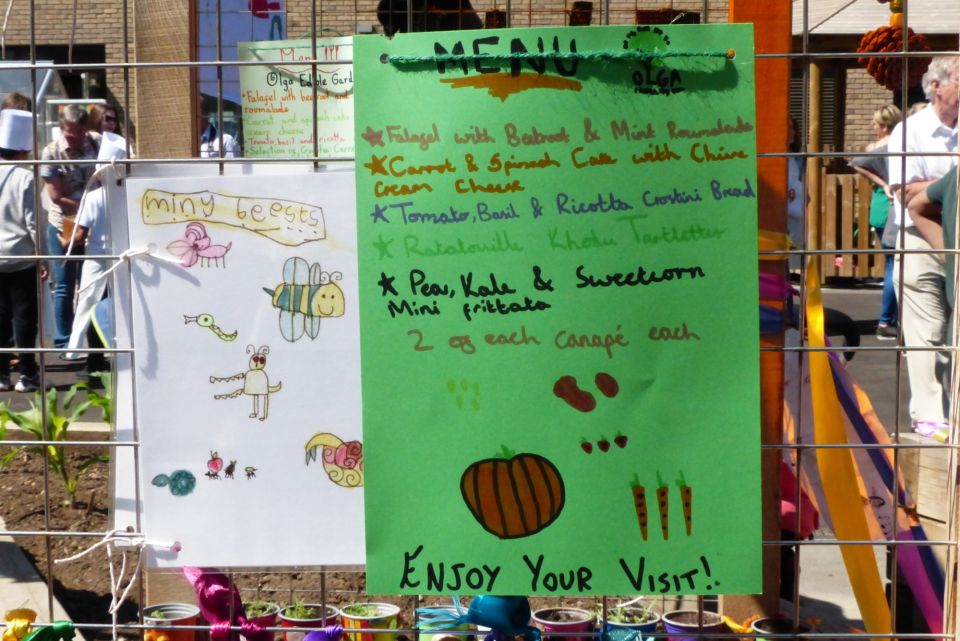 MENU
OLGA
★ Falafel with Beetroot & Mint Roumalade
★ Carrot & Spinach Cake with Chive
Cream Cheese
★ Tomato, Basil & Ricotta Crostini Bread
★ Ratatouille Khobu Tartlettes
★ Pea, Kale & Sweetcorn
Mini frittata
2 of each canapé each
ENJOY YOUR VISIT!
miny beests
Menu !!!
Olga Edible Gard
• Falafel with beetroot and
roumalade
• Carrot and spinach
cream cheese
• Tomato, basil and ricotta
• Selection of